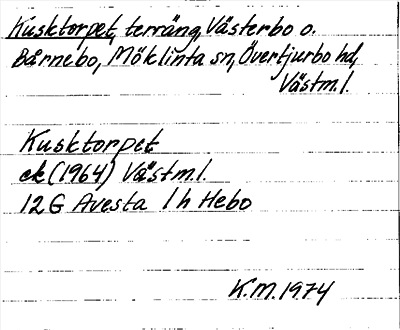 Kusktorpet, terräng, Västerbo o.
Bårnebo, Möklinta sn, Övertjurbo hd,
Västm.l.
Kusktorpet
ek (1964) Västm.l.
12 G Avesta 1 h Hebo
K.M. 1974